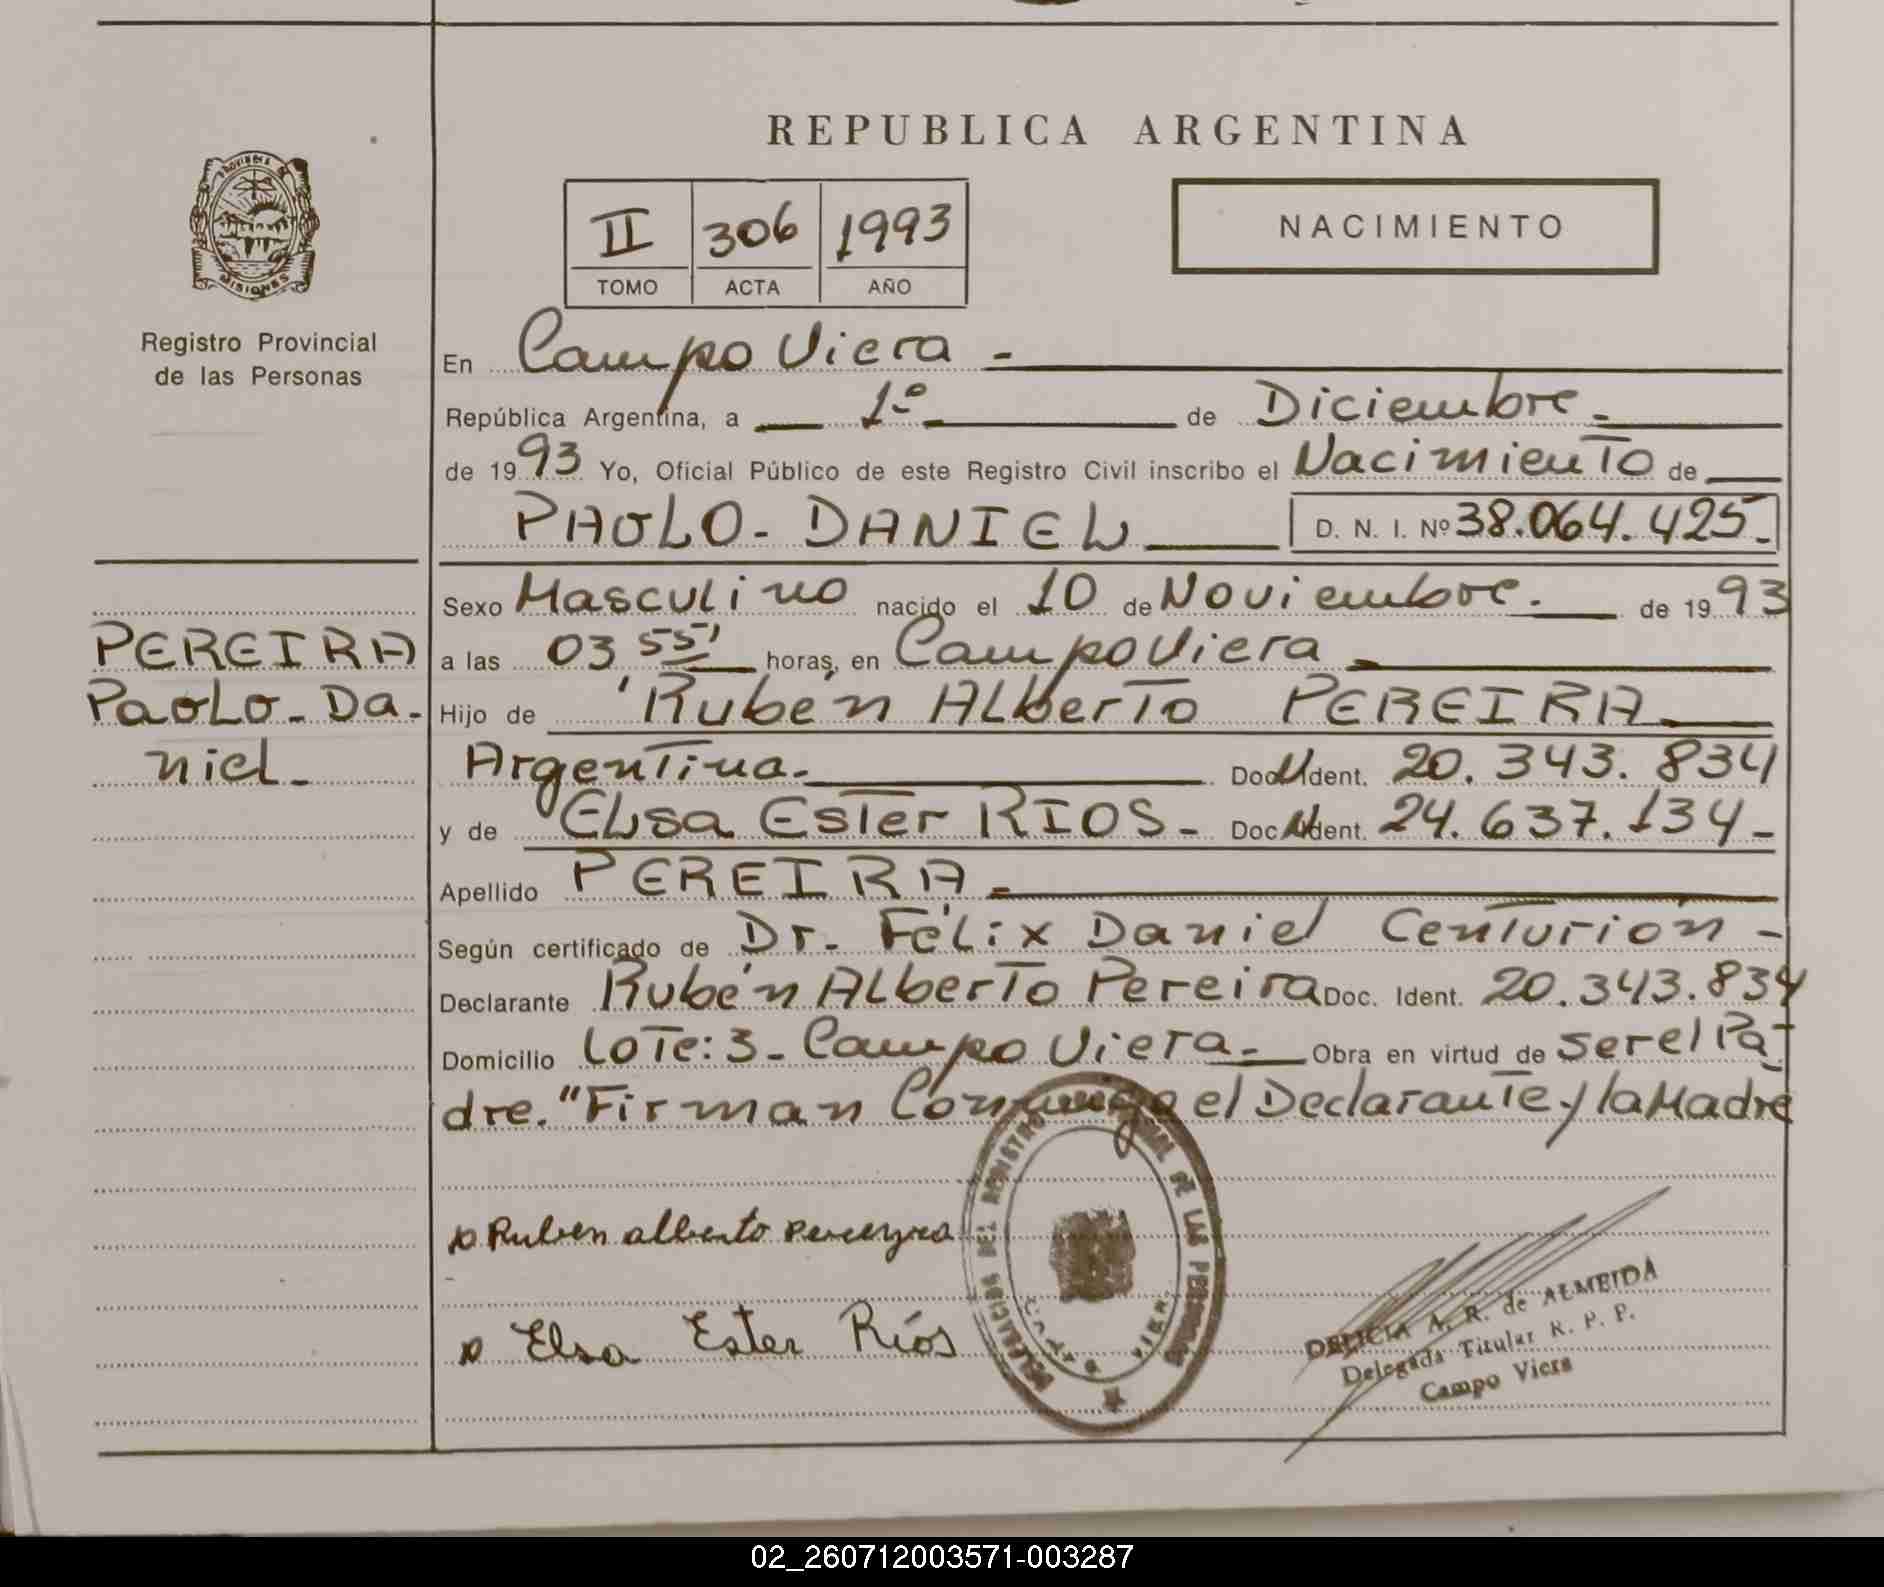 REPUBLICA ARGENTINA
Provincia de
MISIONES
Registro Provincial
de las Personas
II 306 1993
TOMO ACTA AÑO
NACIMIENTO
En Campo Viera -
República Argentina, a 1º de Diciembre -
de 1993 Yo, Oficial Público de este Registro Civil inscribo el Nacimiento de
PAOLO - DANIEL D. N. I. Nº 38.064.425.-
Sexo Masculino nacido el 10 de Noviembre.- de 1993
a las 03 55' horas, en Campo Viera
PEREIRA
Paolo - Da-
niel -
Hijo de Rubén Alberto PEREIRA
Argentina.- Doc. Ident. 20.343.834
y de Elsa Ester RIOS - Doc. Ident. 24.637.134 -
Apellido PEREIRA -
Según certificado de Dr. Félix Daniel Centurión -
Declarante Rubén Alberto Pereira Doc. Ident. 20.343.834
Domicilio Lote: 3 - Campo Viera - Obra en virtud de ser el Pa-
dre. "Firman Conmigo el Declarante y la Madre
Ruben alberto pereyra
Elsa Ester Ríos
DELEGACION DEL REGISTRO DE LAS PERSONAS
VIERA
DELICIA A. R. de ALMEIDA
Delegada Titular R. P. P.
Campo Viera
02_260712003571-003287